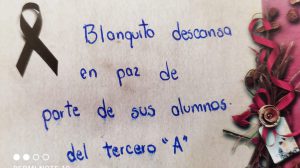 Blanquito descansa
en paz de
parte de sus alumnos.
del tercero "A"